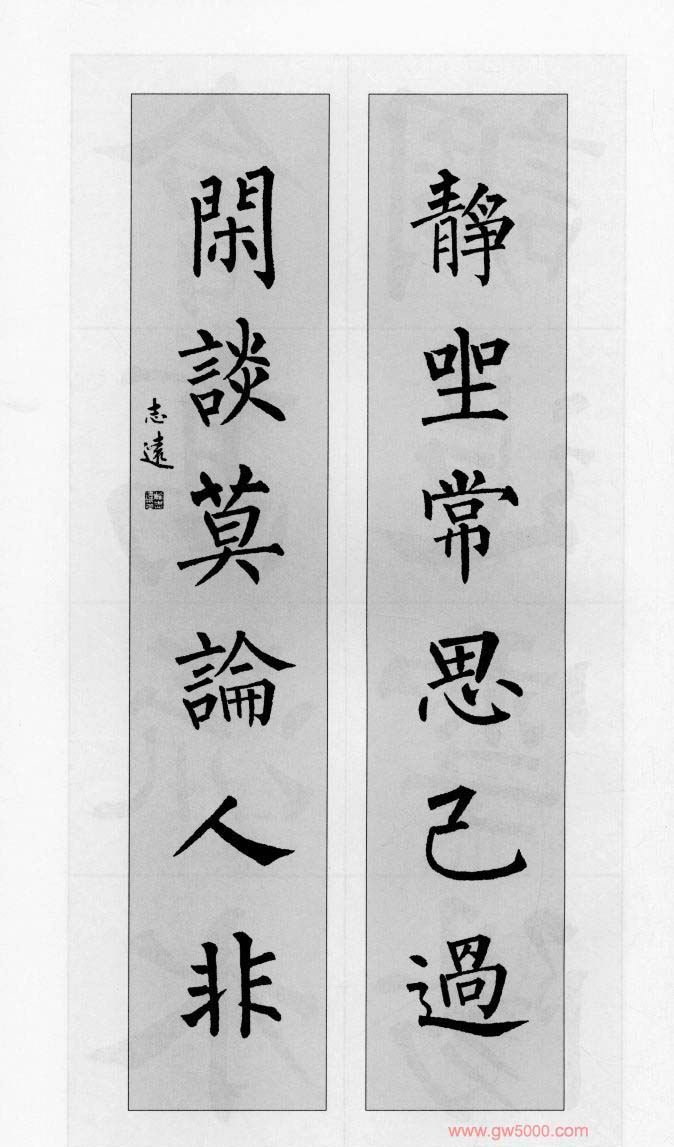 靜坐常思己過
閑談莫論人非
志遠
www.gw5000.com